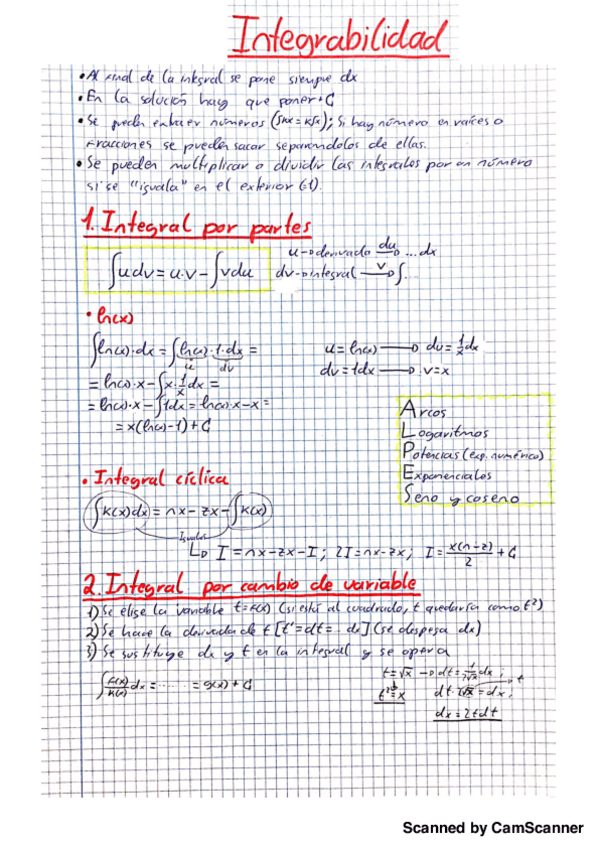 Integrabilidad
• Al final de la integral se pone siempre dx
• En la solución hay que poner +C
• Se pueden extraer números (∫Kx = K∫x); Si hay número en raíces o
fracciones se pueden sacar separandolos de ellas.
• Se pueden multiplicar o dividir las integrales por un número
si se "iguala" en el exterior
1. Integral por partes
∫udv = u·v - ∫vdu
u → derivada du → ...dx
dv → integral v → ∫.
• ln(x)
∫ln(x)·dx = ∫ln(x)·1·dx =
u dv
= ln(x)·x - ∫x·1/x dx =
= ln(x)·x - ∫1dx = ln(x)·x - x =
= x(ln(x)-1) + C
u = ln(x) → du = 1/x dx
dv = 1dx → v = x
Arcos
Logaritmos
Potencias (exp. numérico)
Exponenciales
Seno y coseno
• Integral cíclica
∫K(x)dx = nx - zx - ∫K(x)
Iguales
↳ I = nx - zx - I; 2I = nx - zx; I = x(n-z)/2 + C
2. Integral por cambio de variable
1) Se elige la variable t = f(x) (si está al cuadrado, t quedaría como t²)
2) Se hace la derivada de t [t' = dt = .. dx] (se despeja dx)
3) Se sustituye dx y t en la integral y se opera
∫f(x)/K(x) dx = ...... = g(x) + C
t = √x → dt = 1/2√x dx;
t² = x
dt·2√x = dx;
t
dx = 2tdt
Scanned by CamScanner